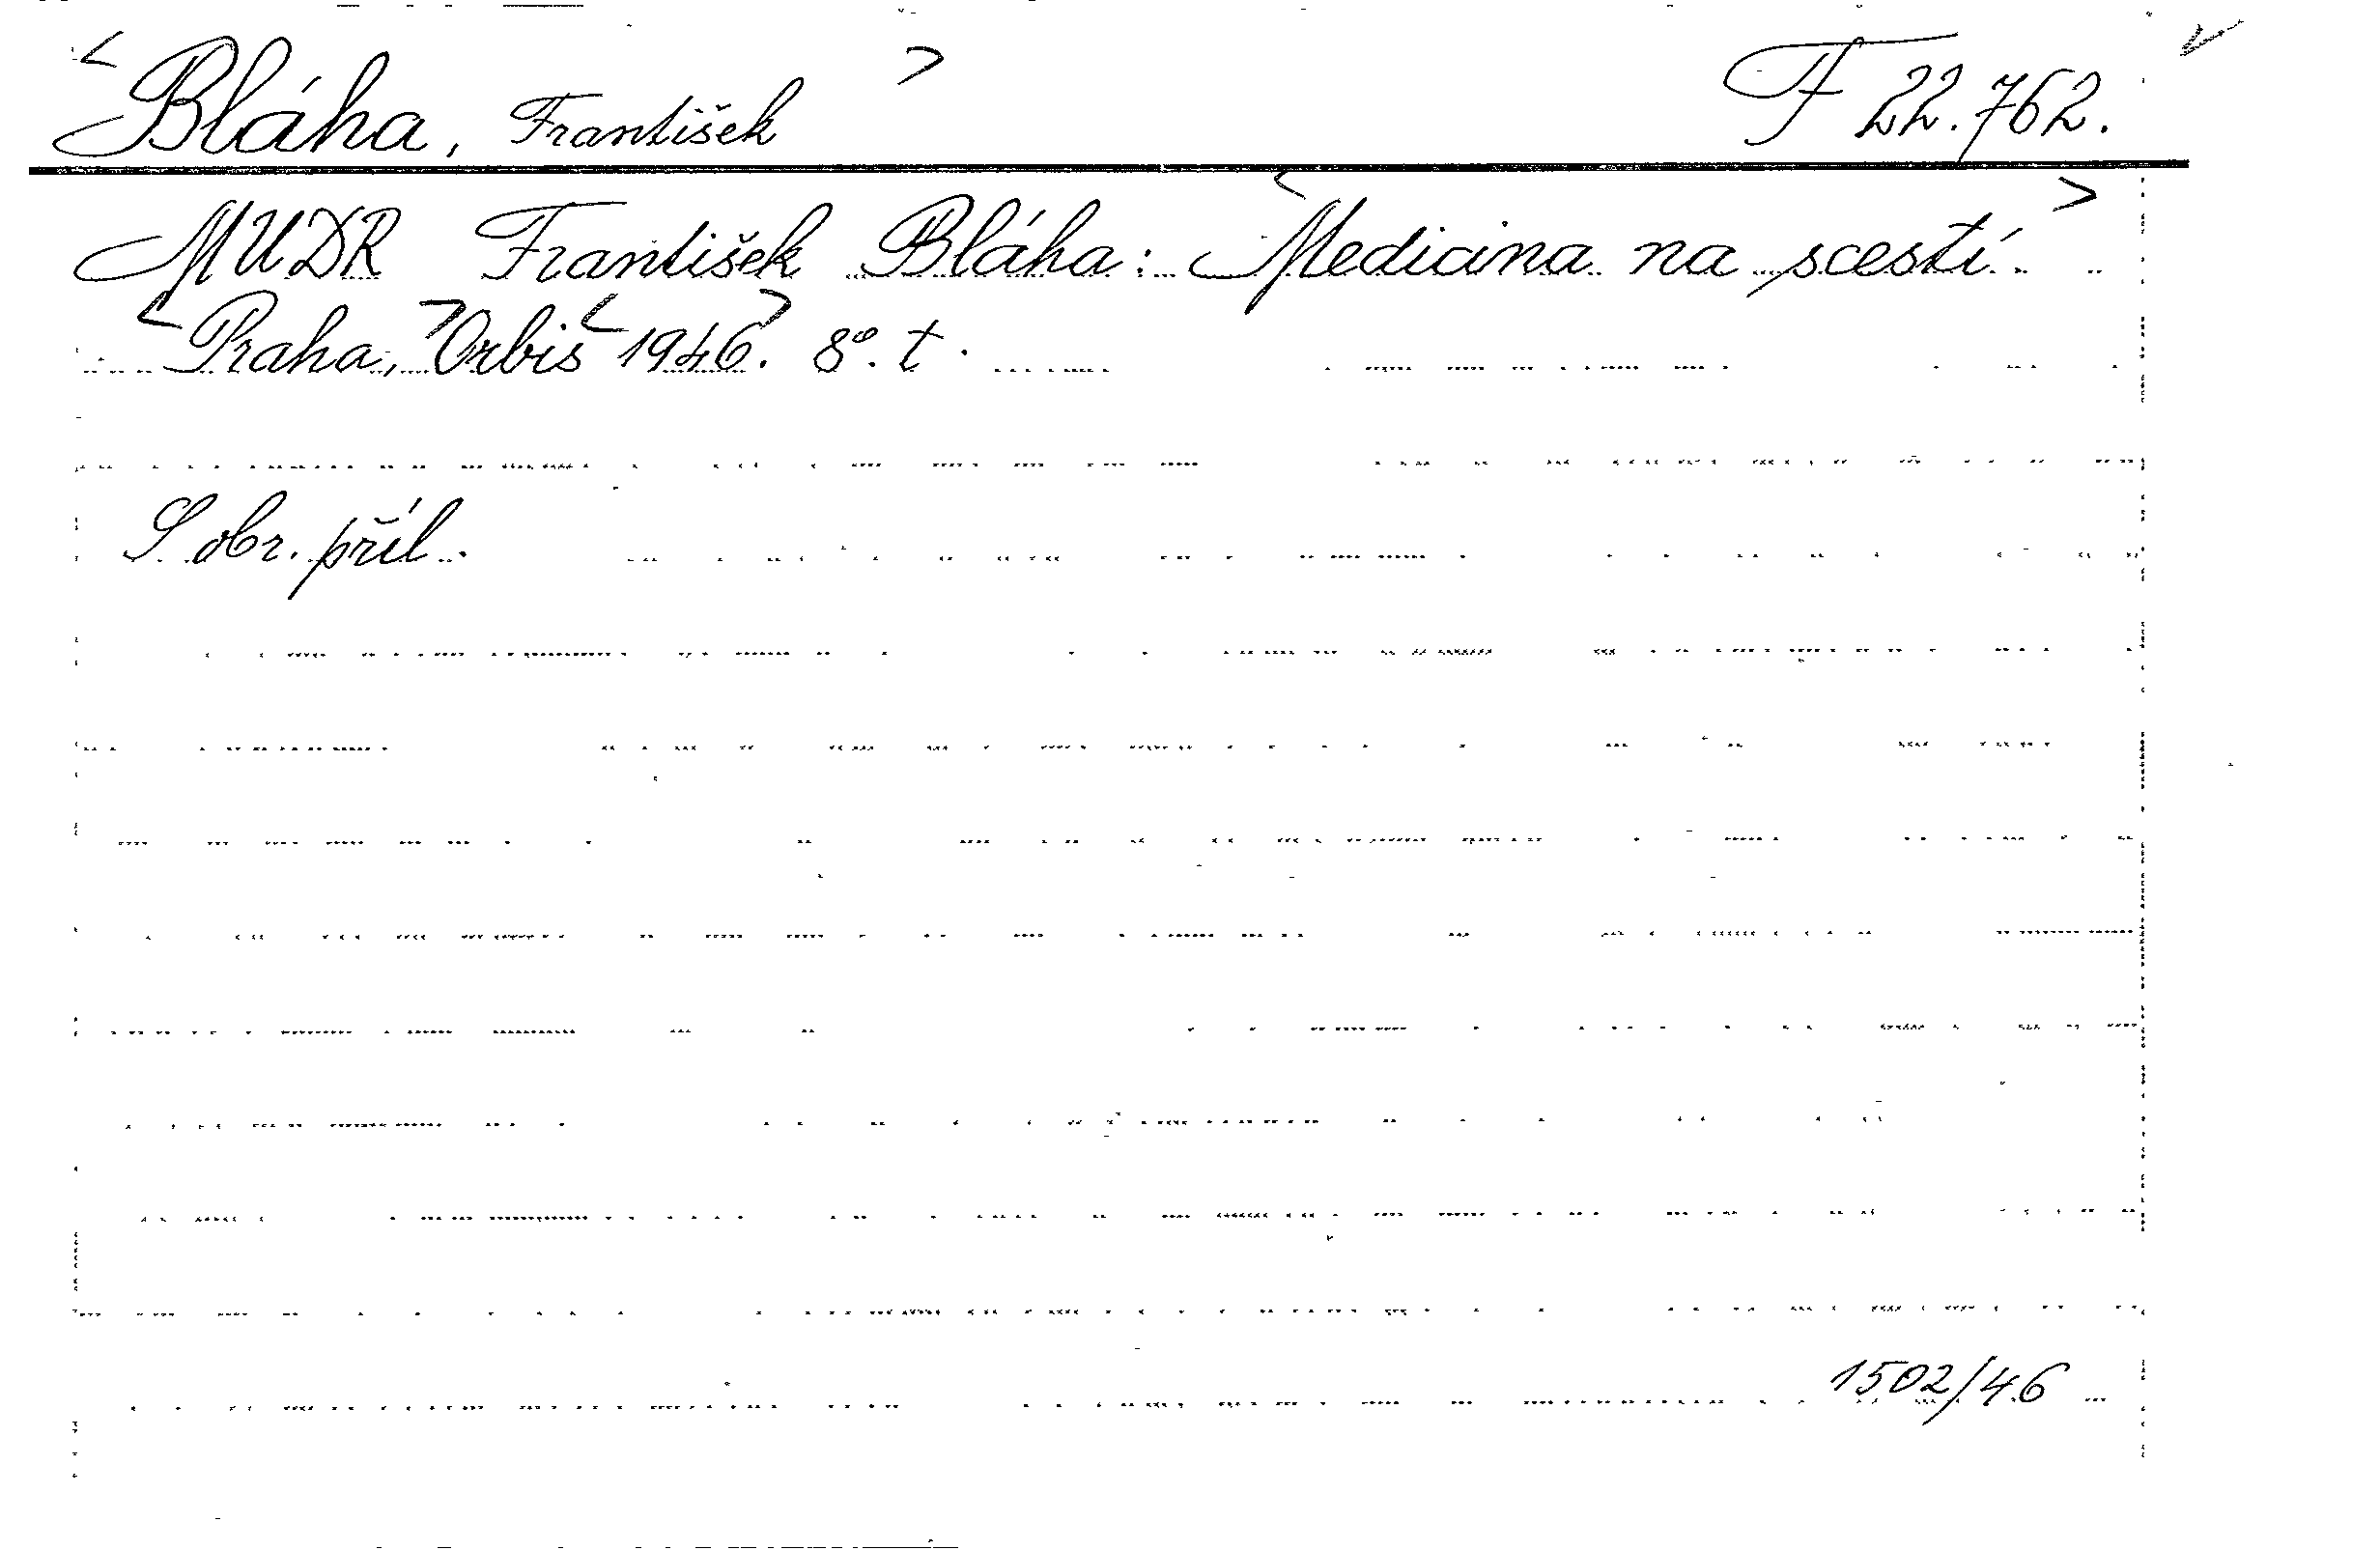 <Bláha, František> F 22.762. v
MUDR František Bláha: <Medicina na scestí.>
<Praha,> Orbis <1946>. 8°. t.
S obr. příl.
1502/46